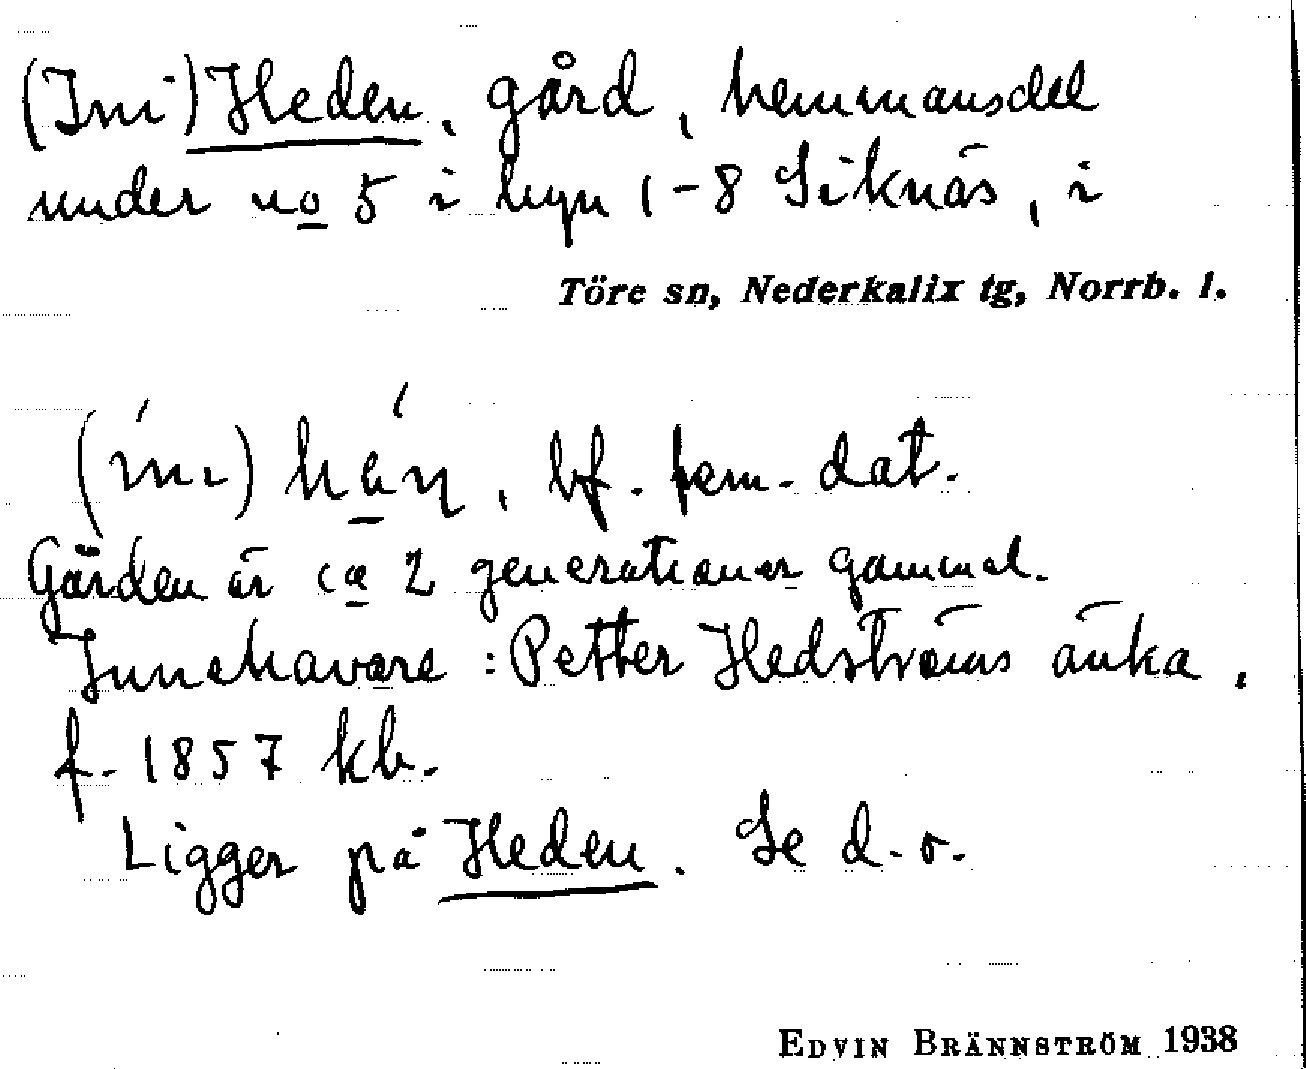 (Ini) Heden, gård, hemmansdel
under no 5 i byn 1-8 Siknäs, i
Töre sn, Nederkalix tg, Norrb. l.
bf. fem. dat.
Gården är ca 2 generationer gammal.
Innehavare: Petter Hedströms änka,
f. 1857 kb.
Ligger på Heden. Se d.o.
EDVIN BRÄNNSTRÖM 1938